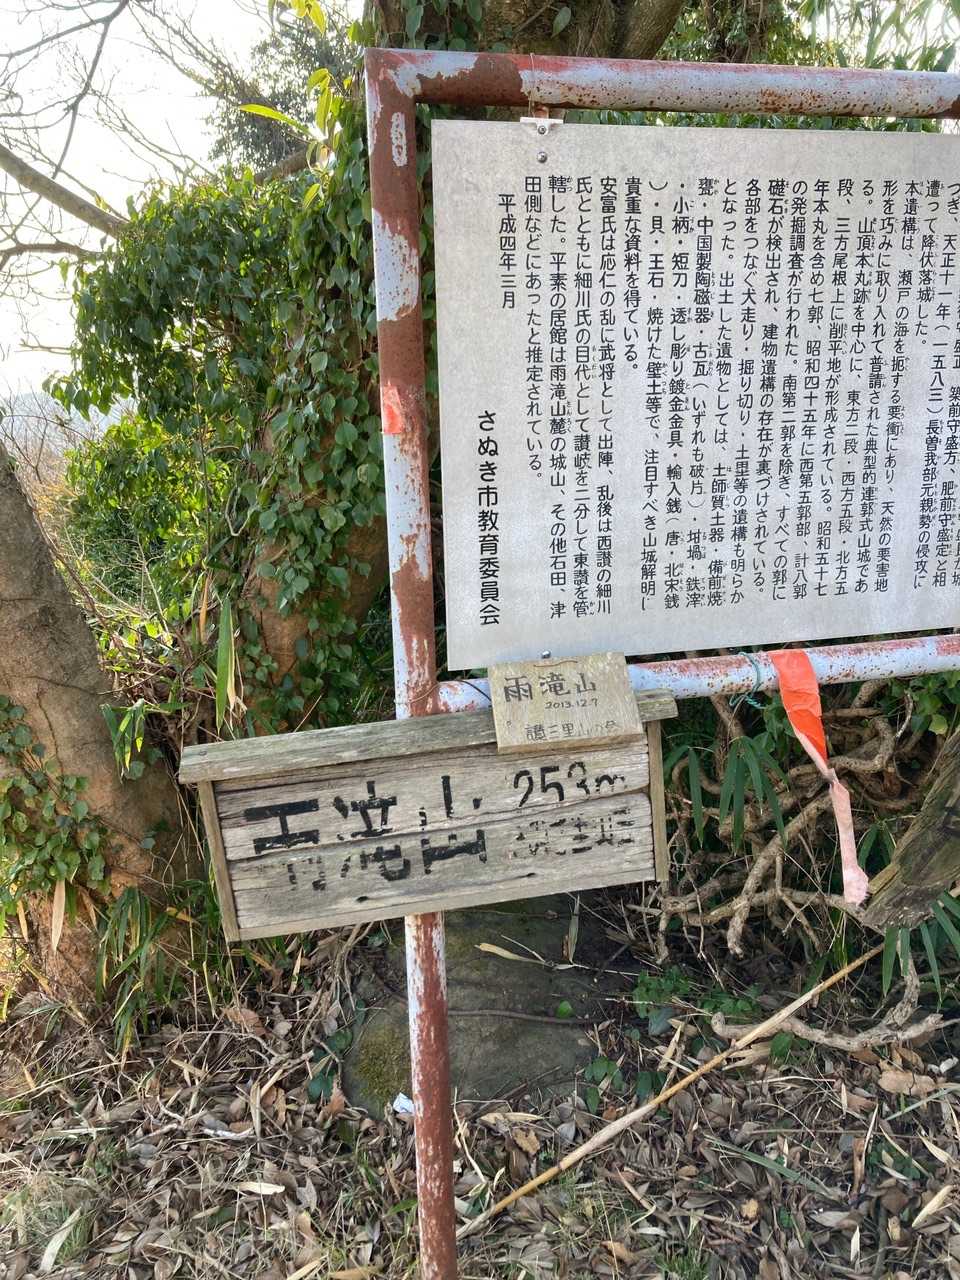 つぎ、天正十一年(一五八三)長曽我部元親勢の侵攻に
遭って降伏落城した。
本遺構は、瀬戸の海を扼する要衝にあり、天然の要害地
形を巧みに取り入れて普請された典型的連郭式山城であ
る。山頂本丸跡を中心に、東方二段・西方五段・北方五
段、三方尾根上に削平地が形成されている。昭和五十七
年本丸を含め七郭、昭和四十五年に西第五郭部、計八郭
の発掘調査が行われた。南第二郭を除き、すべての郭に
礎石が検出され、建物遺構の存在が裏づけされている。
各部をつなぐ犬走り・掘り切り・土塁等の遺構も明らか
となった。出土した遺物としては、土師質土器・備前焼
甕・中国製陶磁器・古瓦(いずれも破片)・坩堝・鉄滓
・小柄・短刀・透し彫り鍍金金具・輸入銭(唐・北宋銭
)・貝・玉石・焼けた壁土等で、注目すべき山城解明に
貴重な資料を得ている。
安富氏は応仁の乱に武将として出陣、乱後は西讃の細川
氏とともに細川氏の目代として讃岐を二分して東讃を管
轄した。平素の居館は雨滝山麓の城山、その他石田、津
田側などにあったと推定されている。
平成四年三月
さぬき市教育委員会
雨滝山
2013.12.7
讃三里山の会
雨滝山 253m